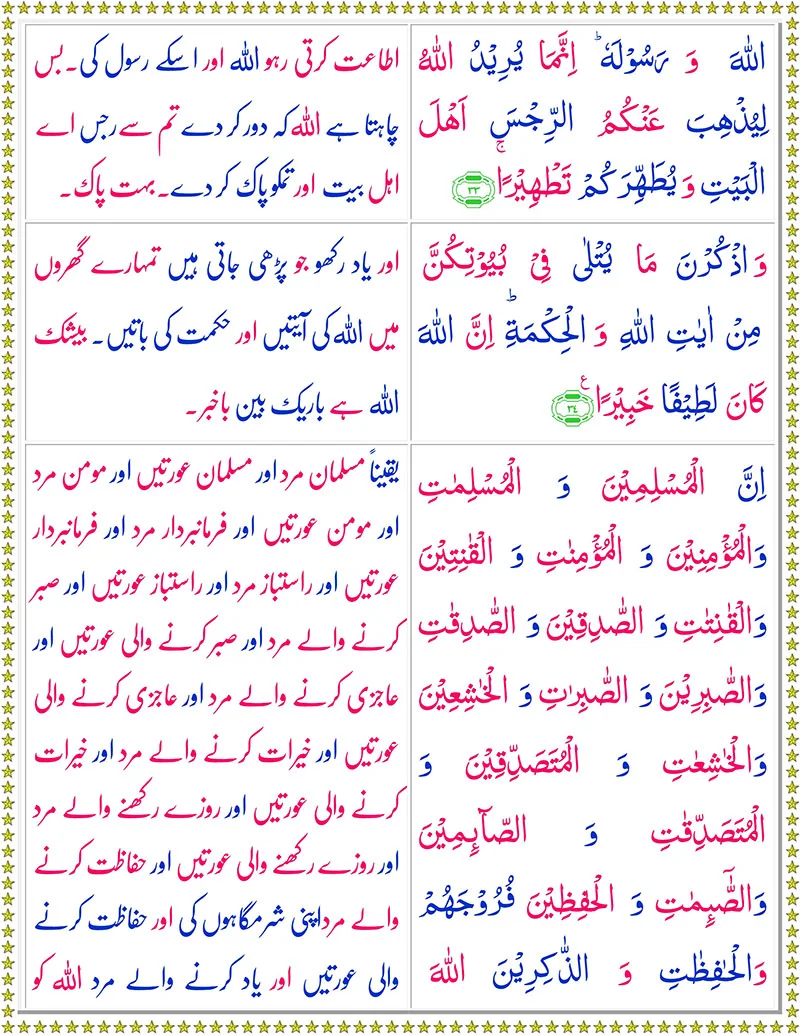 اللّٰهَ وَ رَسُوْلَهٗ ؕ اِنَّمَا يُرِيْدُ اللّٰهُ
لِيُذْهِبَ عَنْكُمُ الرِّجْسَ اَهْلَ
الْبَيْتِ وَ يُطَهِّرَكُمْ تَطْهِيْرًا ۚ ﴿٣٣﴾
اطاعت کرتی رہو اللہ اور اسکے رسول کی۔ بس
چاہتا ہے اللہ کہ دور کر دے تم سے رجس اے
اہل بیت اور تمکو پاک کر دے۔ بہت پاک۔
وَ اذْكُرْنَ مَا يُتْلٰى فِيْ بُيُوْتِكُنَّ
مِنْ اٰيٰتِ اللّٰهِ وَ الْحِكْمَةِ ؕ اِنَّ اللّٰهَ
كَانَ لَطِيْفًا خَبِيْرًا ﴿٣٤﴾ ع
اور یاد رکھو جو پڑھی جاتی ہیں تمہارے گھروں
میں اللہ کی آیتیں اور حکمت کی باتیں۔ بیشک
اللہ ہے باریک بین باخبر۔
اِنَّ الْمُسْلِمِيْنَ وَ الْمُسْلِمٰتِ
وَالْمُؤْمِنِيْنَ وَ الْمُؤْمِنٰتِ وَ الْقٰنِتِيْنَ
وَالْقٰنِتٰتِ وَ الصّٰدِقِيْنَ وَ الصّٰدِقٰتِ
وَالصّٰبِرِيْنَ وَ الصّٰبِرٰتِ وَ الْخٰشِعِيْنَ
وَالْخٰشِعٰتِ وَ الْمُتَصَدِّقِيْنَ وَ
الْمُتَصَدِّقٰتِ وَ الصَّآىِٕمِيْنَ
وَالصّٰٓىِٕمٰتِ وَ الْحٰفِظِيْنَ فُرُوْجَهُمْ
وَالْحٰفِظٰتِ وَ الذّٰكِرِيْنَ اللّٰهَ
یقیناً مسلمان مرد اور مسلمان عورتیں اور مومن مرد
اور مومن عورتیں اور فرمانبردار مرد اور فرمانبردار
عورتیں اور راستباز مرد اور راستباز عورتیں اور صبر
کرنے والے مرد اور صبر کرنے والی عورتیں اور
عاجزی کرنے والے مرد اور عاجزی کرنے والی
عورتیں اور خیرات کرنے والے مرد اور خیرات
کرنے والی عورتیں اور روزے رکھنے والے مرد
اور روزے رکھنے والی عورتیں اور حفاظت کرنے
والے مرد اپنی شرمگاہوں کی اور حفاظت کرنے
والی عورتیں اور یاد کرنے والے مرد اللہ کو